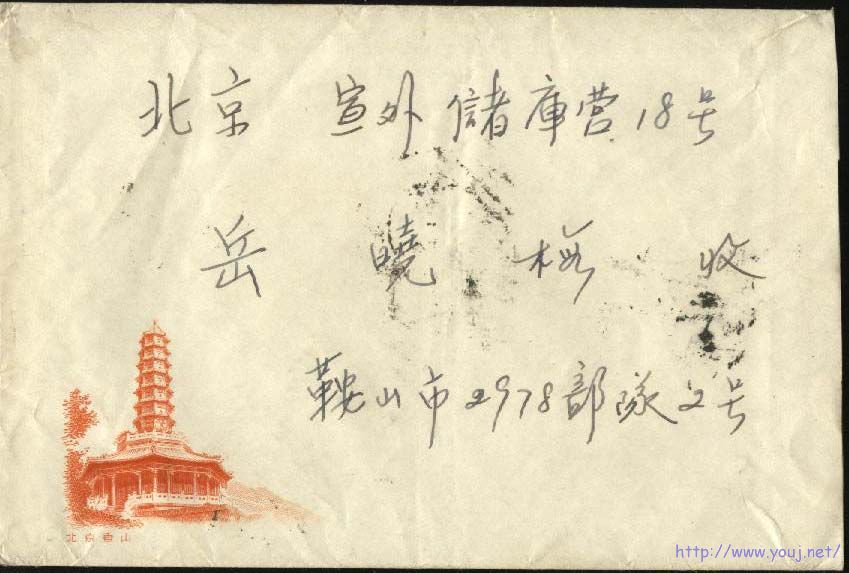 北京 宣外儲庫营18号
岳曉梅 收
鞍山市2978部隊2号
北京香山
http://www.youj.net/